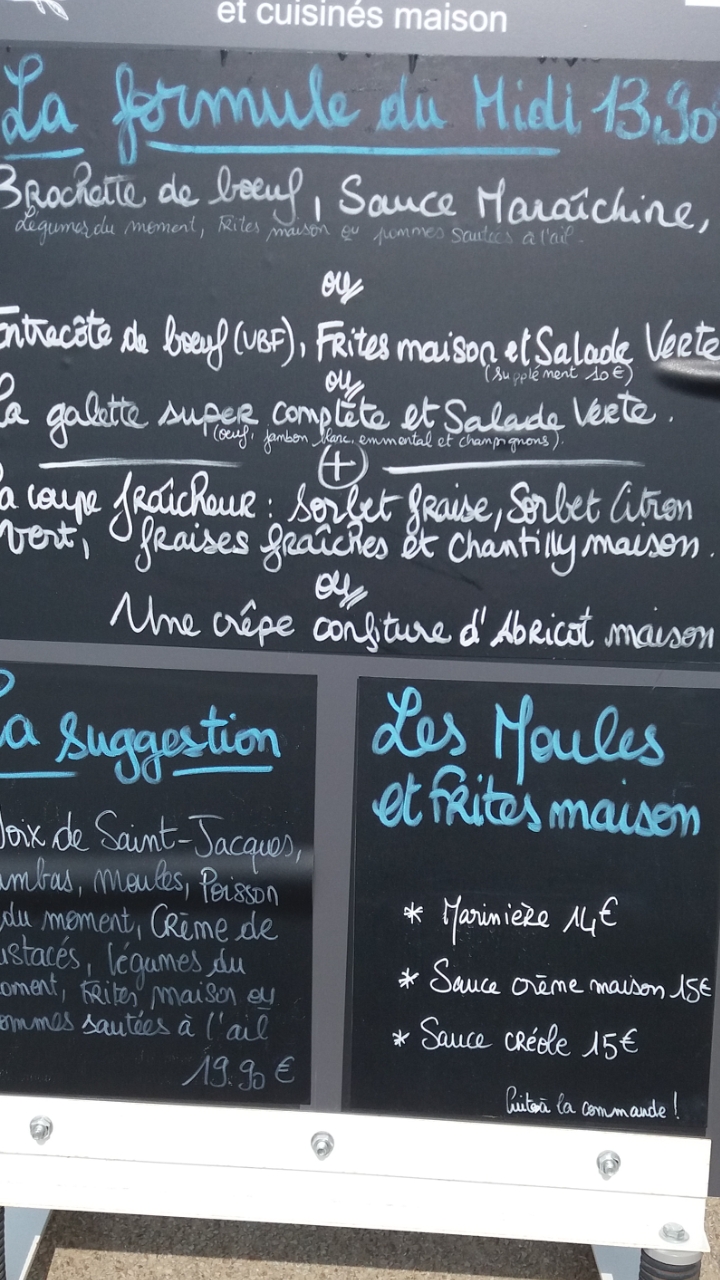 et cuisinés maison
La formule du Midi 13,90
Brochette de bœuf, Sauce Maraîchine,
Légumes du moment, Frites maison ou pommes sautées à l'ail.
ou
Entrecôte de bœuf (VBF), Frites maison et Salade Verte
(Supplément 10€)
ou
La galette super complète et Salade Verte.
(œuf, jambon blanc, emmental et champignons).
+
La coupe fraîcheur : Sorbet fraise, Sorbet Citron
Vert, fraises fraîches et Chantilly maison.
ou
Une crêpe confiture d'Abricot maison
La suggestion
Noix de Saint-Jacques,
ambas, moules, Poisson
du moment, Crème de
ustacés, légumes du
oment, Frites maison ou
ommes sautées à l'ail
19.90 €
Les Moules
et Frites maison
* Marinière 14€
* Sauce crème maison 15€
* Sauce créole 15€
à la commande !